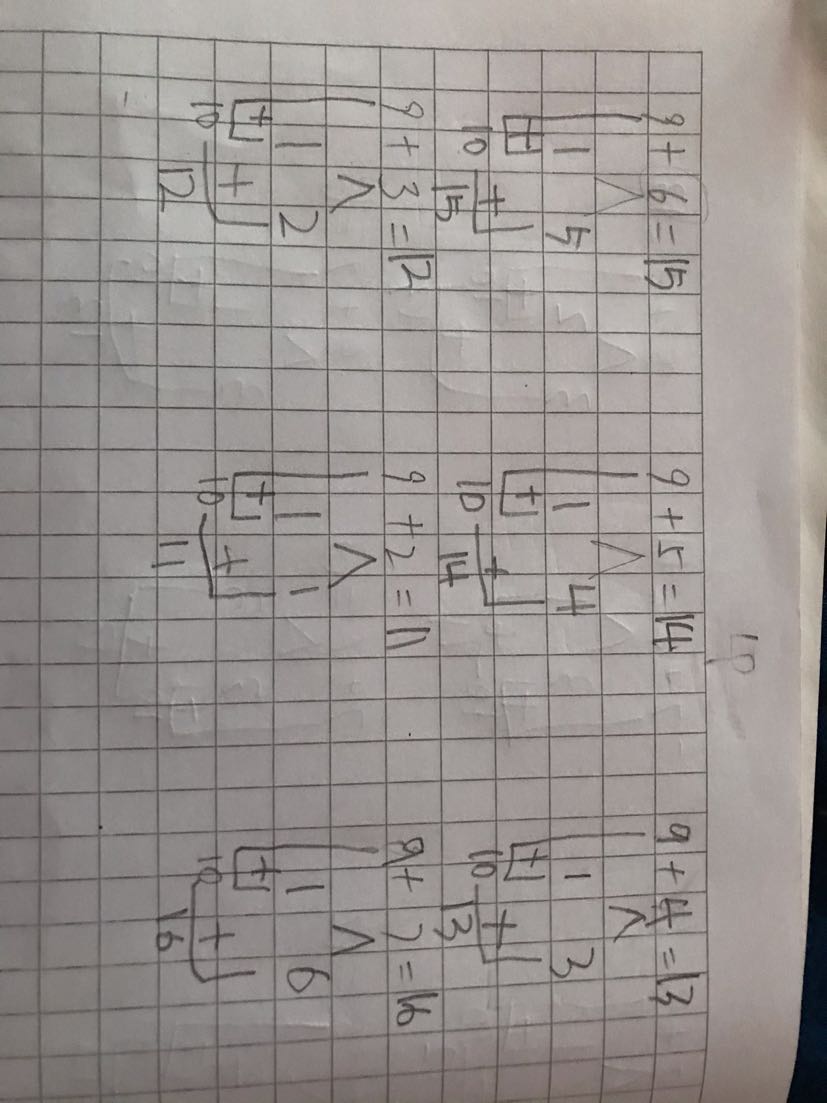 9 + 6 = 15 9 + 5 = 14 9 + 4 = 13
∧ ∧ ∧
1 5 1 4 1 3
+ + +
10 + 10 + 10 +
15 14 13
9 + 3 = 12 9 + 2 = 11 9 + 7 = 16
∧ ∧ ∧
1 2 1 1 1 6
+ + + + + +
10 10 10
12 11 16